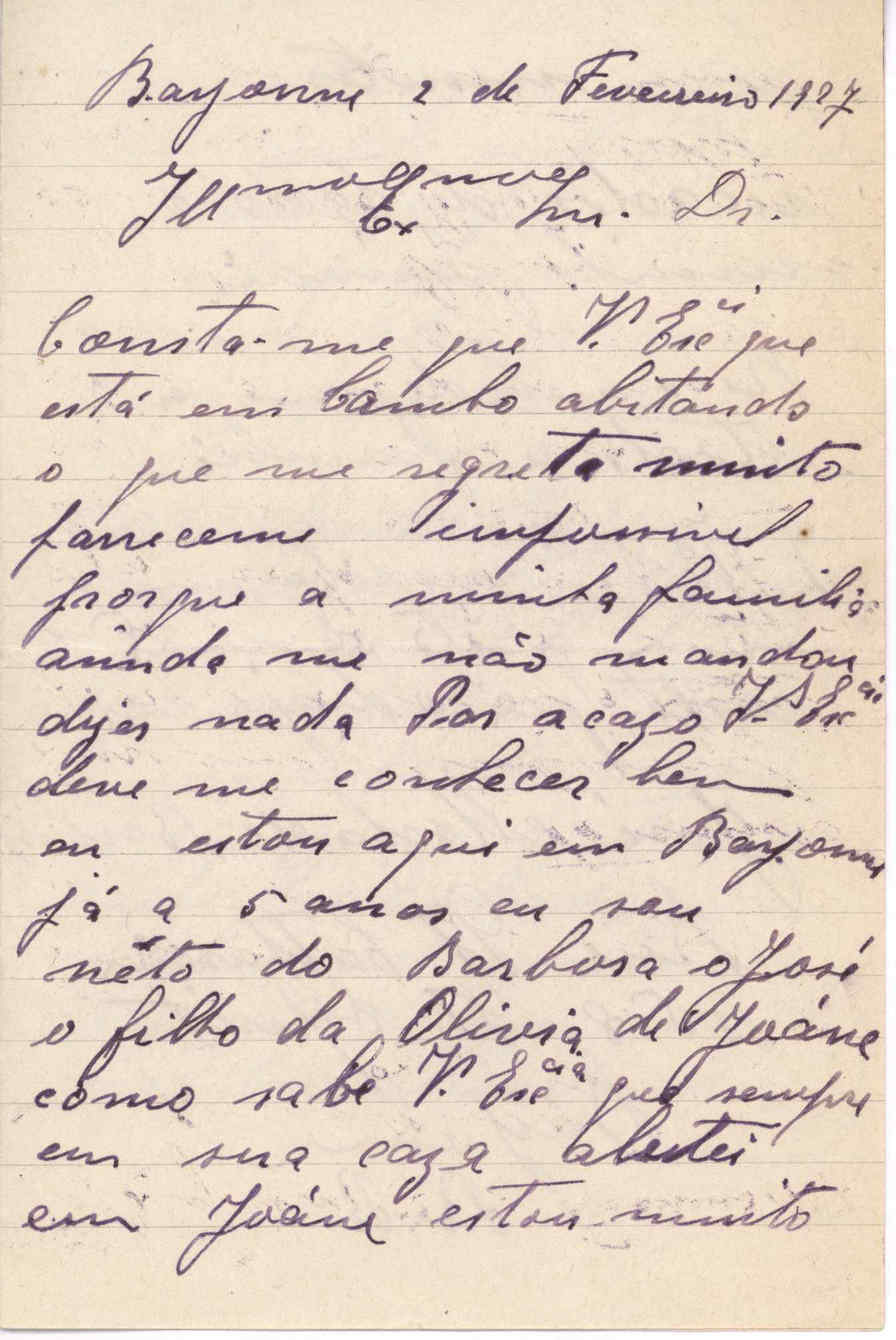 Bayonne 2 de Fevereiro 1927
Illmo Exmo Snr. Dr.
Consta-me que V. Excia que
está em Cambo abitando
o que me segreta muito
parreceme impossivel
prorque a minha familia
ainda me não mandou
dizer nada Por acazo V. Excia
deve me conhecer bem
eu estou aqui em Bayonne
já a 5 anos eu sou
néto do Barbosa o José
o filho da Olivia de Joáne
como sabe V. Excia que sempre
em sua caza abitei
em Joáne estou muito